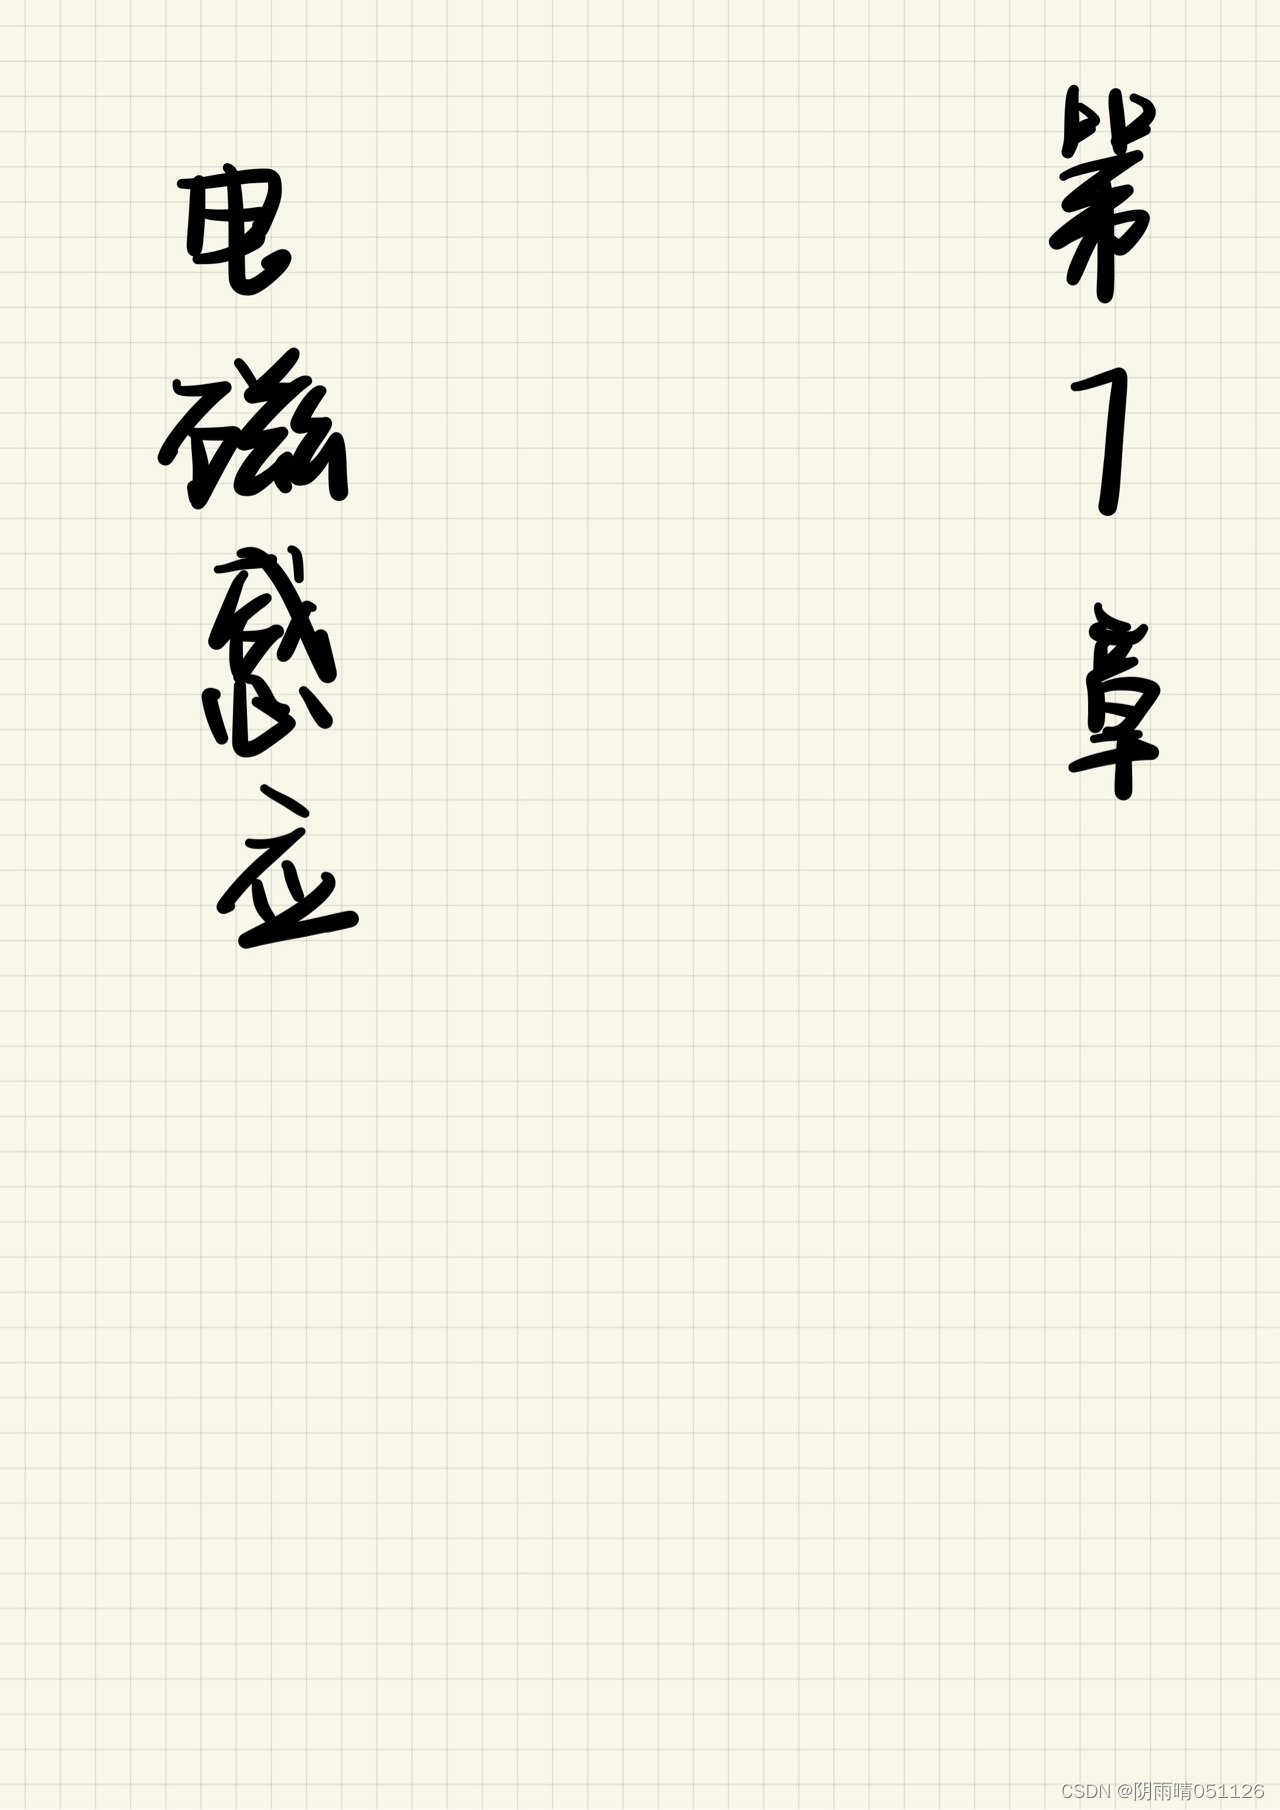 第7章
电磁感应
CSDN @阴雨晴051126